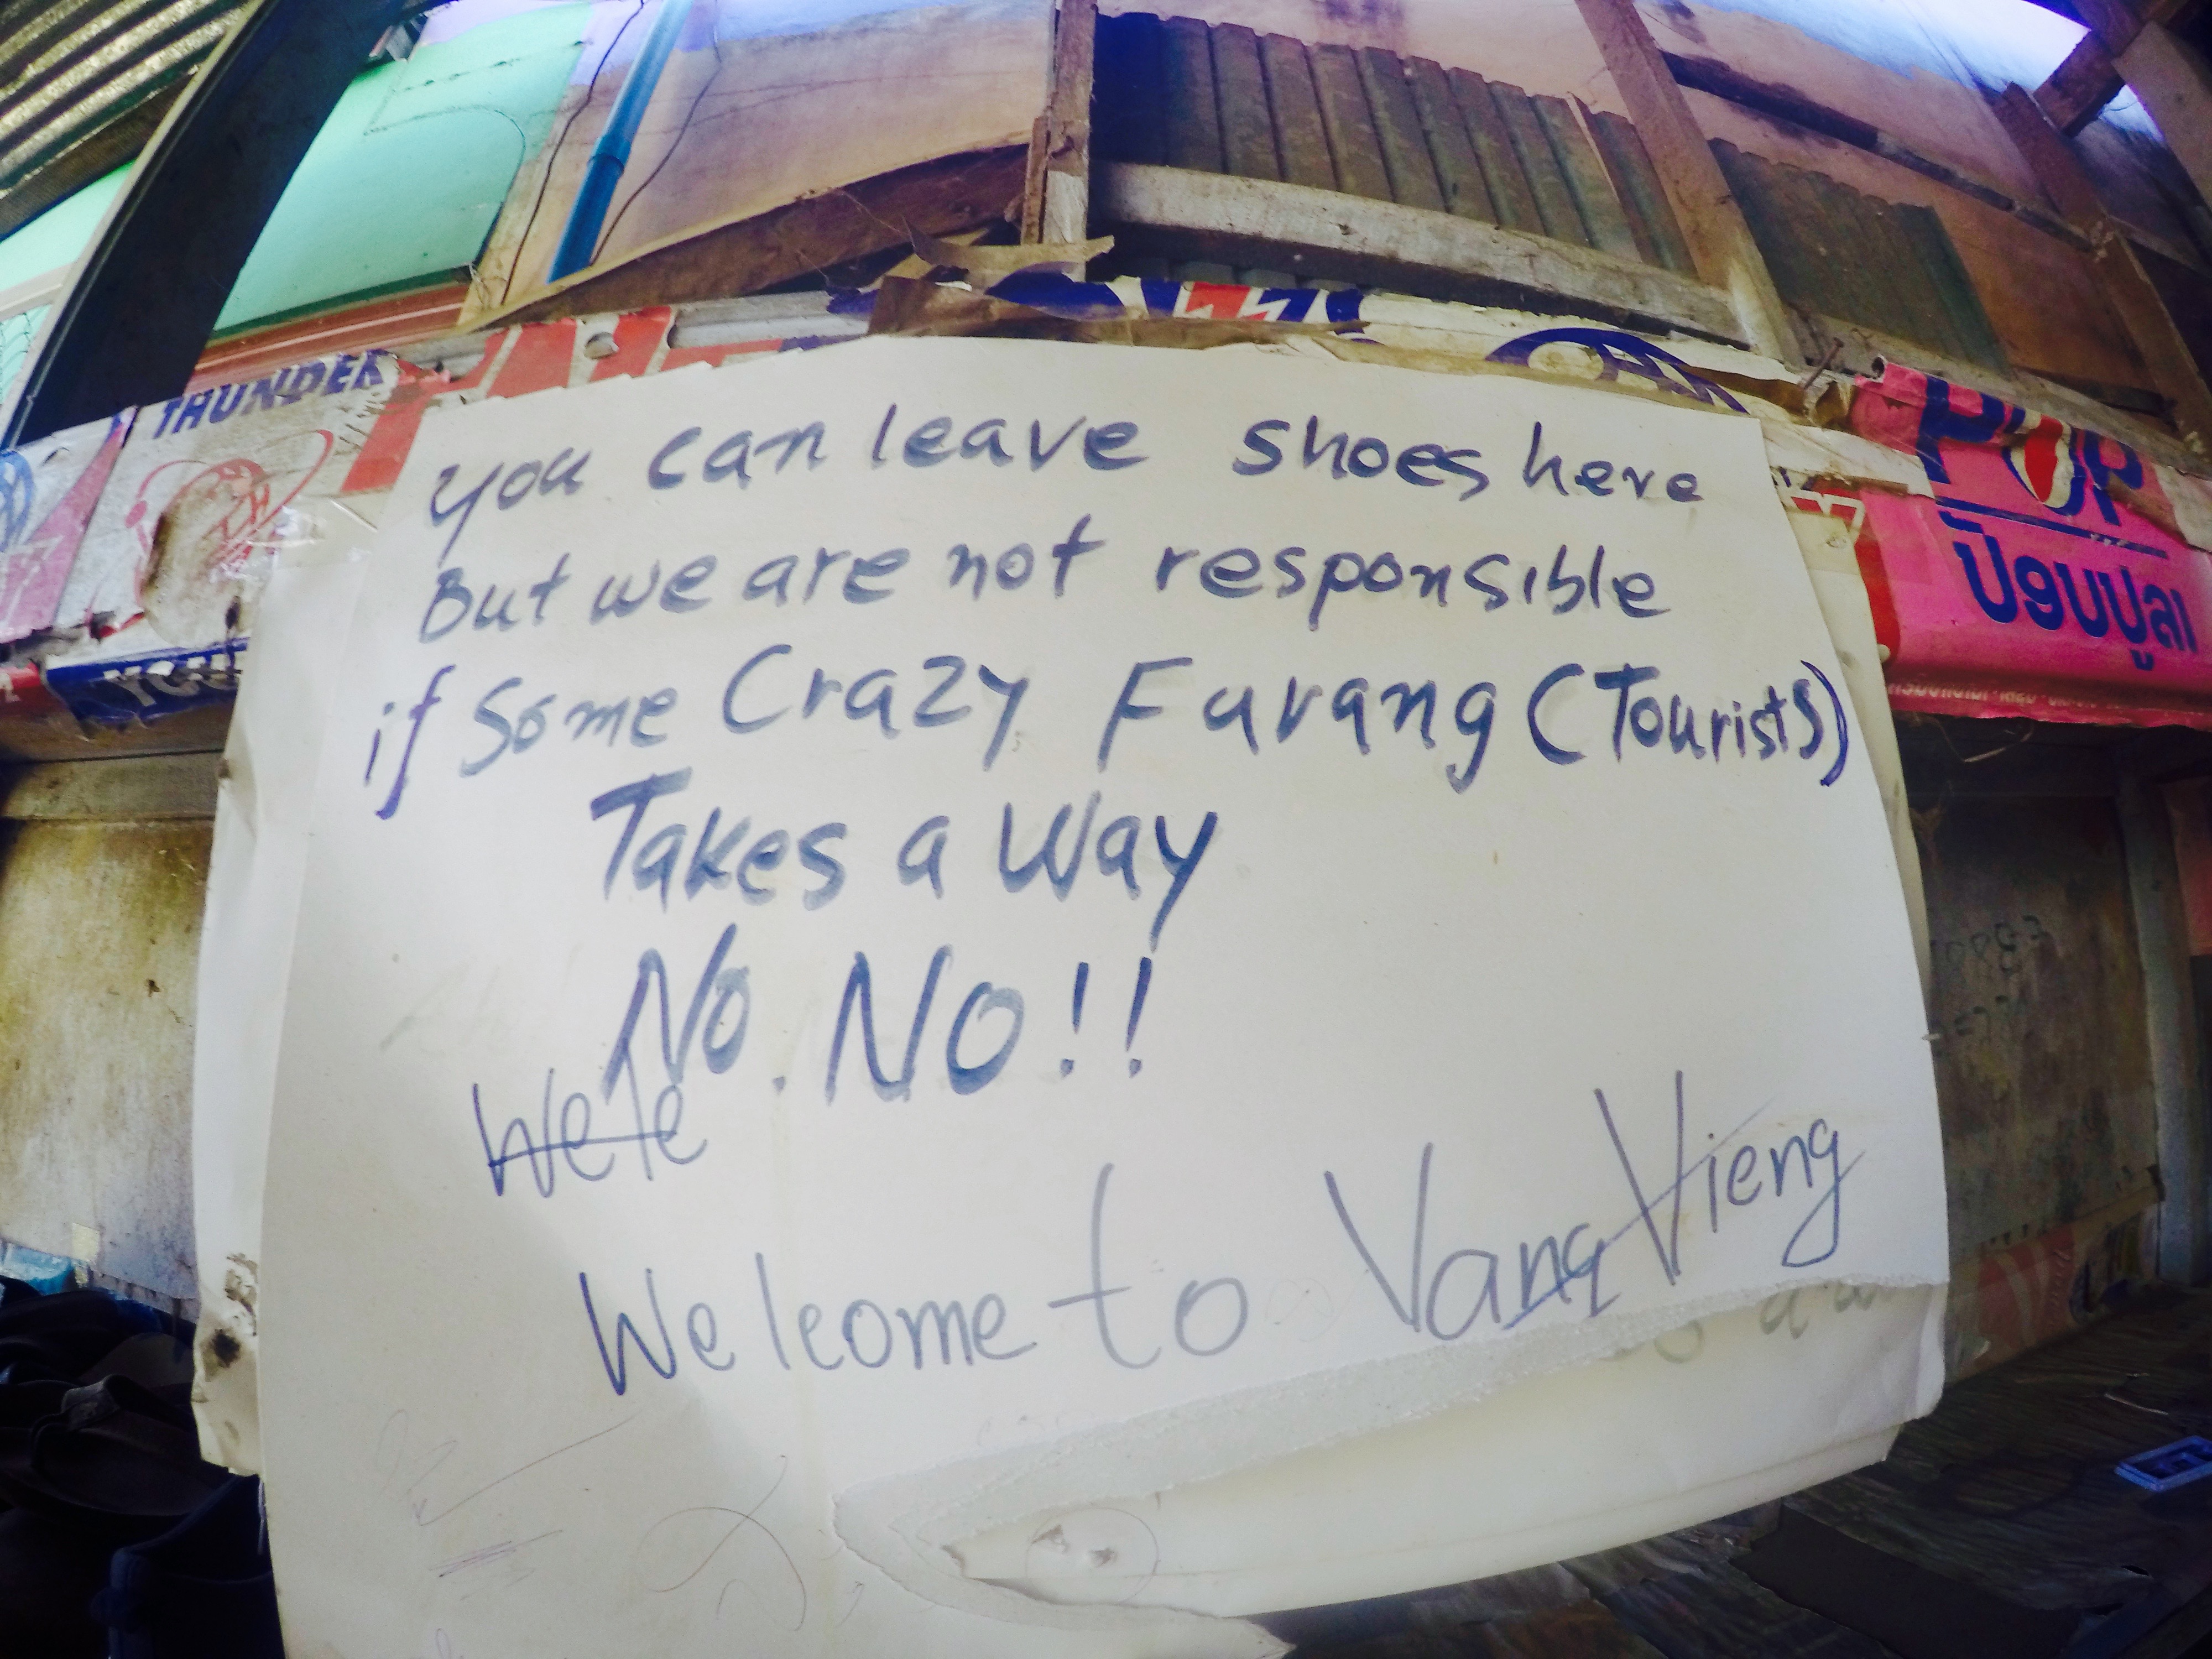 THUNDER
POP
ປ໊ອບປູລາ
you can leave shoes here
But we are not responsible
if Some Crazy Farang (Tourists)
Takes a Way
No. No!!
Wele
Welcome to Vang Vieng